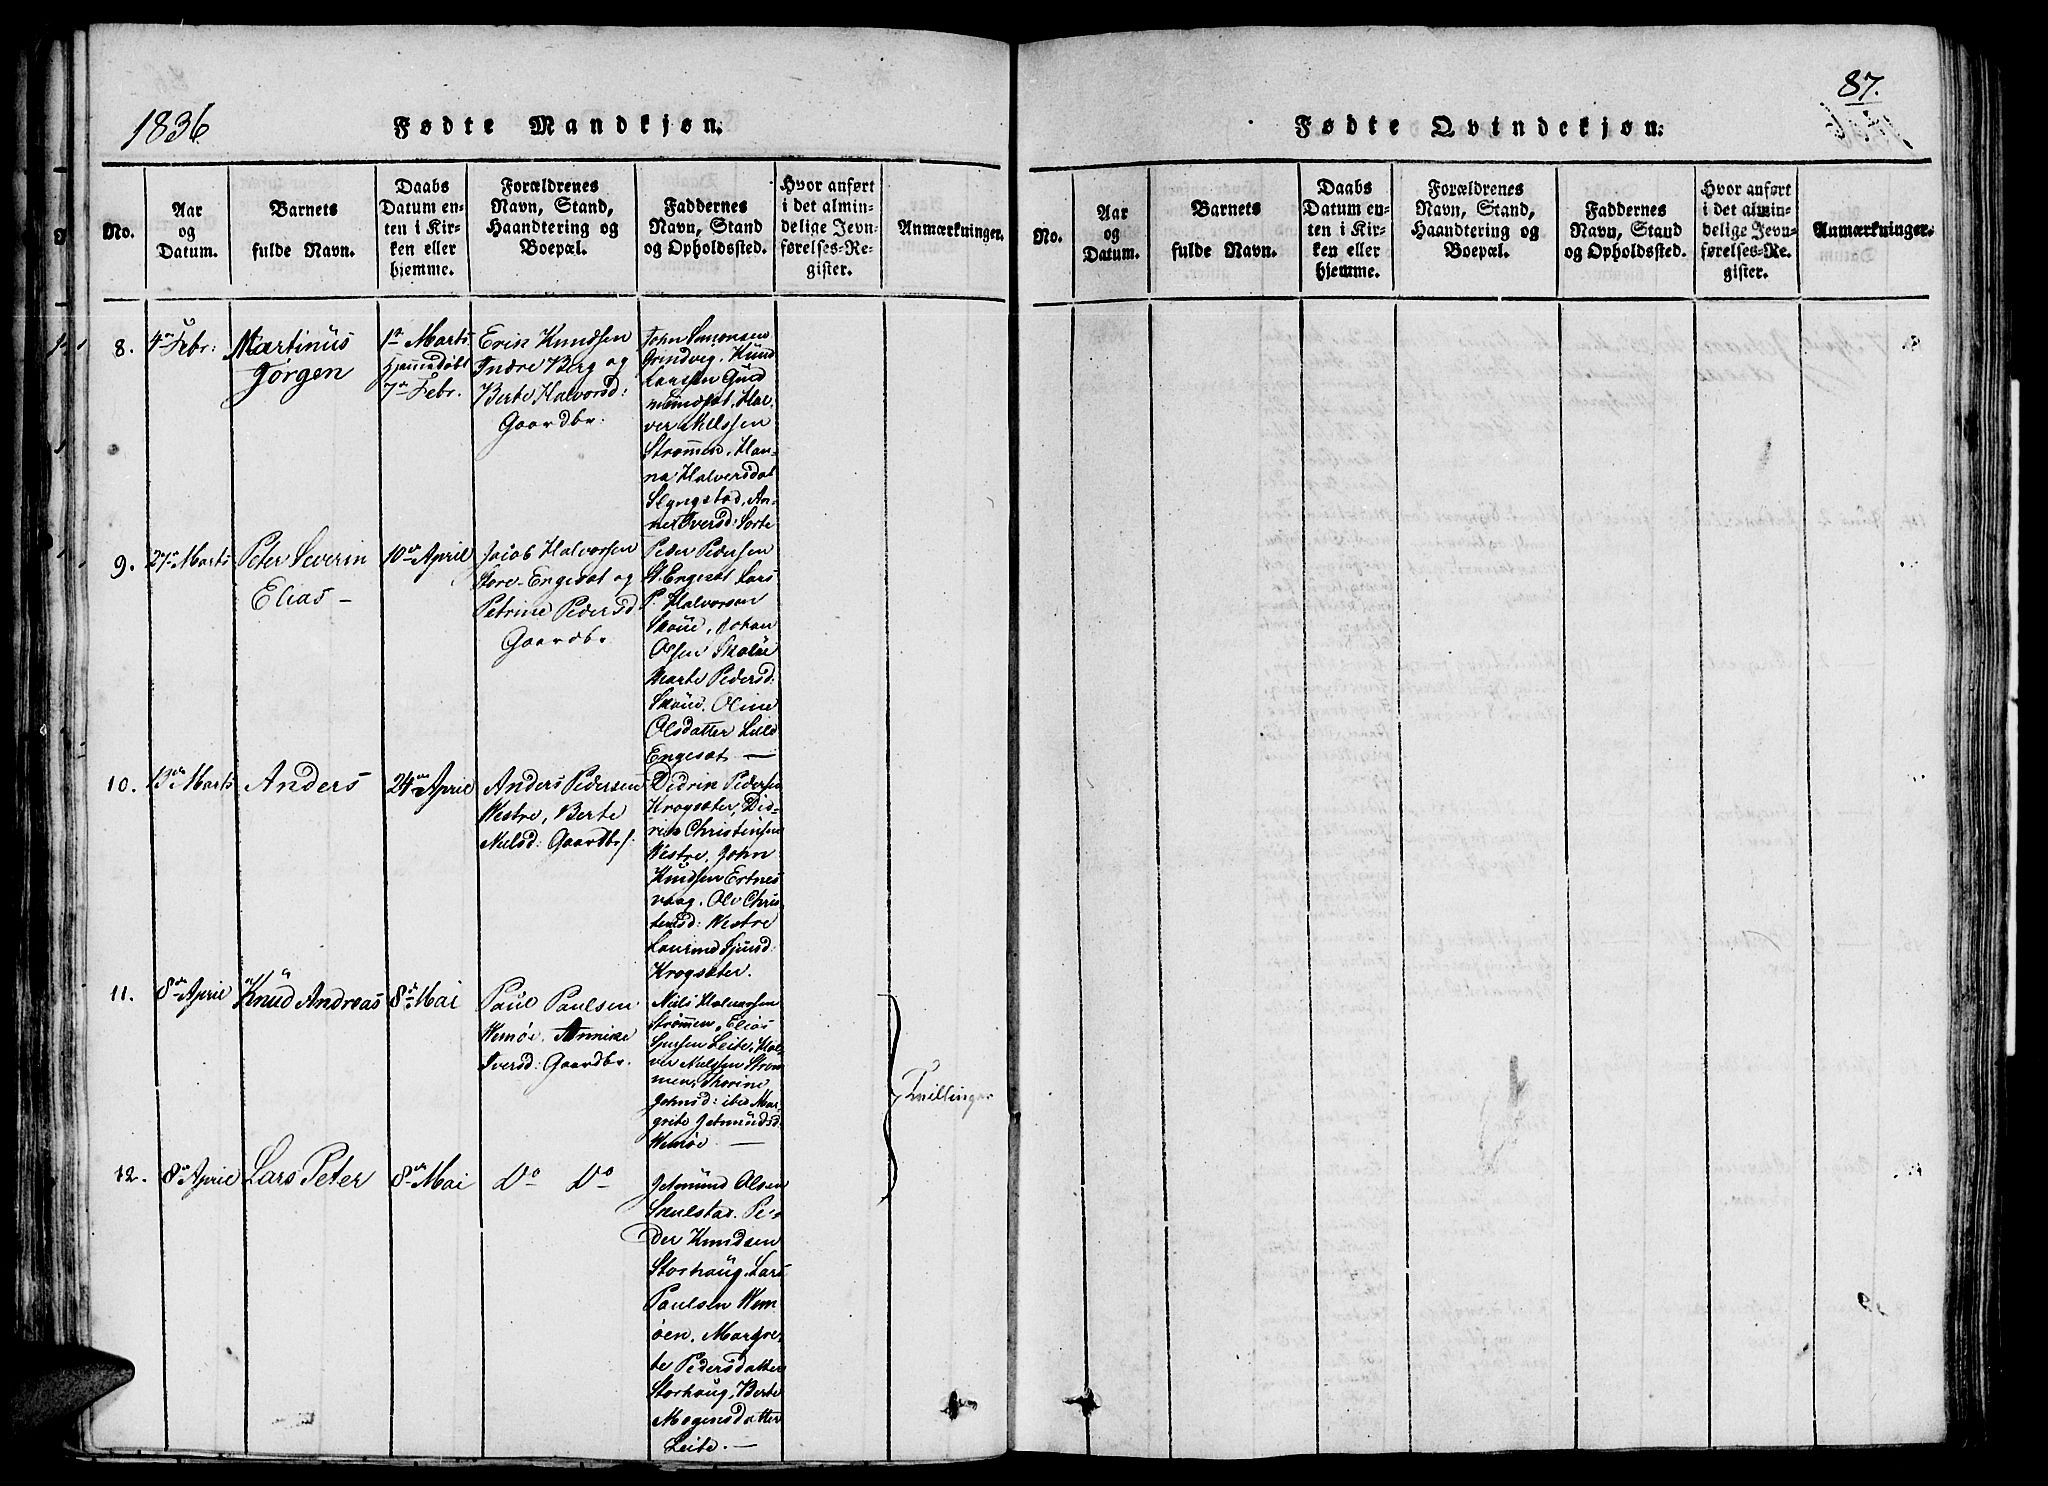 1836
Fødte Mandkjøn.
No.
Aar
og
Datum.
Barnets
fulde Navn.
Daabs
Datum en-
ten i Kir-
ken eller
hjemme.
Forældrenes
Navn, Stand,
Haandtering og
Boepæl.
Faddernes
Navn, Stand
og Opholdssted.
Hvor anført
i det almin-
delige Jevn-
førelses-Re-
gister.
Anmærkninger.
8.
4de Febr:
Martinus
Jørgen
1ste Marts
Hjemmedøbt
7de Febr.
Eric Knudsen
Indre Berg og
Berte Halvorsd:
Gaardbr:
John Simonsen
Grindvig, Knud
Larsen Gud
mundset, Hal-
vor Nielssen
Strømmen, Han-
na Halversdat
Slyngstad, An-
ne Iversd: Sorte
9.
27de Marts
Peter Severin
Elias –
10de April
Jacob Halvorsen
Store-Engeset og
Petrine Pedersd
Gaardb.
Peder Pedersen
St. Engeset, Lars
P. Halvorsen
Skoue, Johan
Olsen Skolse
Marte Pedersd:
Skoue, Oline
Olsdatter Lille
Engeset. —
10.
13de Marts
Anders
24de April
Anders Pedersen
Westre, Berte
Nielsd: Gaardbrf:
Didrik Pedersen
Krogsæter, Did-
rik Christensen
Westre, John
Knudsen Ertnes
vaag, Ole Chris-
tensd: Westre
Laurine Sjursd:
Krogsæter.
11.
8de April
Knud Andreas
8de Mai
Paul Paulsen
Wemøe, Annike
Iversd: Gaardbr.
Niels Halvorssen
Strømmen, Elias
Sjursen Leite, Hal-
vor Nielssen Strøm-
men, Thorine
Johnsd: ibid Mar-
grete Jetmundsd:
Wemøe. —
Tvillinger
12.
8de April
Lars Peter
8de Mai
Do Do
Jetmund Olsen
Skulstax, Pe-
der Knudsen
Storhaug, Lars
Paulsen Wem
øen, Margre-
te Pedersdatter
Storhaug, Berte
Mogensdatter
Leite. —
87.
Fødte Qvindekjøn.
No.
Aar
og
Datum.
Barnets
fulde Navn.
Daabs
Datum en-
ten i Kir-
ken eller
hjemme.
Forældrenes
Navn, Stand,
Haandtering og
Boepæl.
Faddernes
Navn, Stand
og Opholdssted.
Hvor anført
i det almin-
delige Jevn-
førelses-Re-
gister.
Anmærkninger.